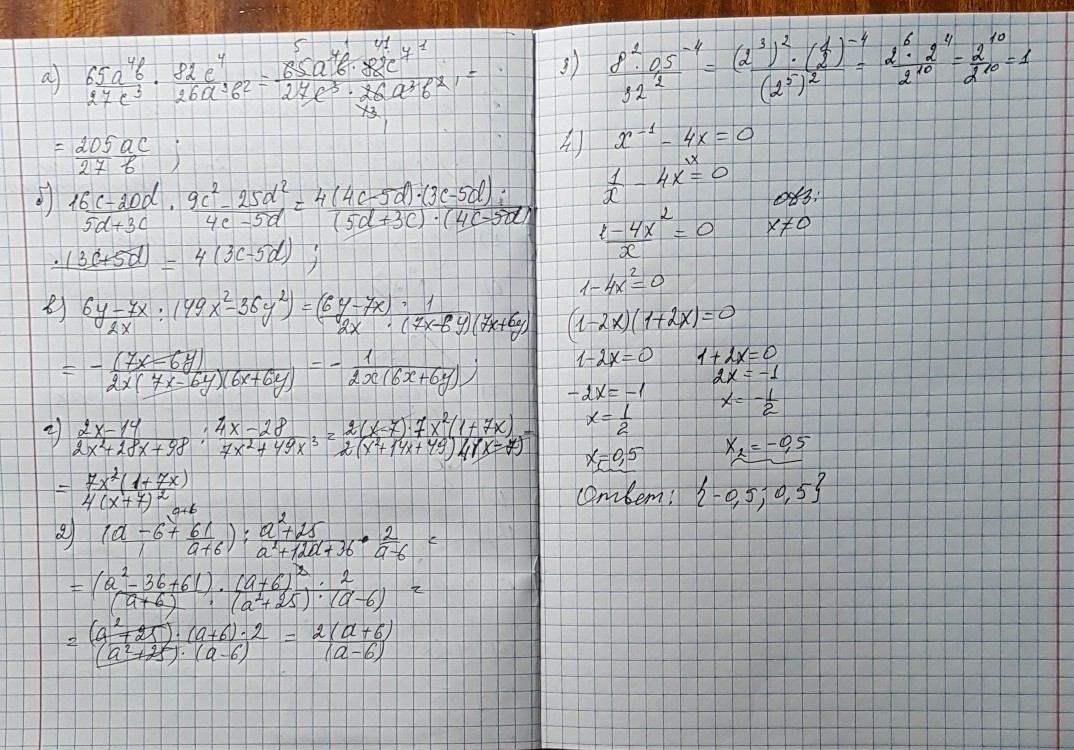 а) 65a⁴b/27c³ · 82c⁴/26a³b² = 65a⁴b · 82c⁴/27c³ · 26a³b² =
= 205ac/27b ;
б) 16c-20d/5d+3c · 9c²-25d²/4c-5d = 4(4c-5d)·(3c-5d)·/(5d+3c)·(4c-5d)
·(3c+5d) = 4(3c-5d) ;
в) 6y-7x/2x : (49x²-36y²) = (6y-7x) · 1/2x · (7x-6y)(7x+6y)
= - (7x-6y)/2x(7x-6y)(6x+6y) = - 1/2x(6x+6y) ;
г) 2x-14/2x²+28x+98 : 4x-28/7x²+49x³ = 2(x-7)·7x²(1+7x)/2(x²+14x+49)4(x-7) =
= 7x²(1+7x)/4(x+7)²
2) (a - 6 + 61/a+6) : a²+25/a²+12a+36 · 2/a-6 =
= (a²-36+61)/(a+6) · (a+6)²/(a²+25) · 2/(a-6) =
= (a²+25)·(a+6)·2/(a²+25)·(a-6) = 2(a+6)/(a-6)
3) 8²·0,5⁻⁴/32² = (2³)²·(1/2)⁻⁴/(2⁵)² = 2⁶·2⁴/2¹⁰ = 2¹⁰/2¹⁰ = 1
4) x⁻¹ - 4x = 0
1/x - 4x = 0
одз:
1-4x²/x = 0 x≠0
1-4x²=0
(1-2x)(1+2x)=0
1-2x=0 1+2x=0
-2x=-1 2x=-1
x=1/2 x=-1/2
x=0,5 x₂=-0,5
Ответ: {-0,5; 0,5}